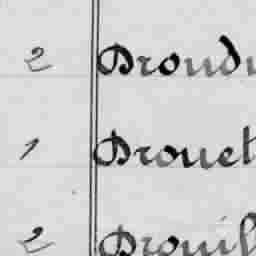 2 Droudu
1 Drouet
2 Drouil